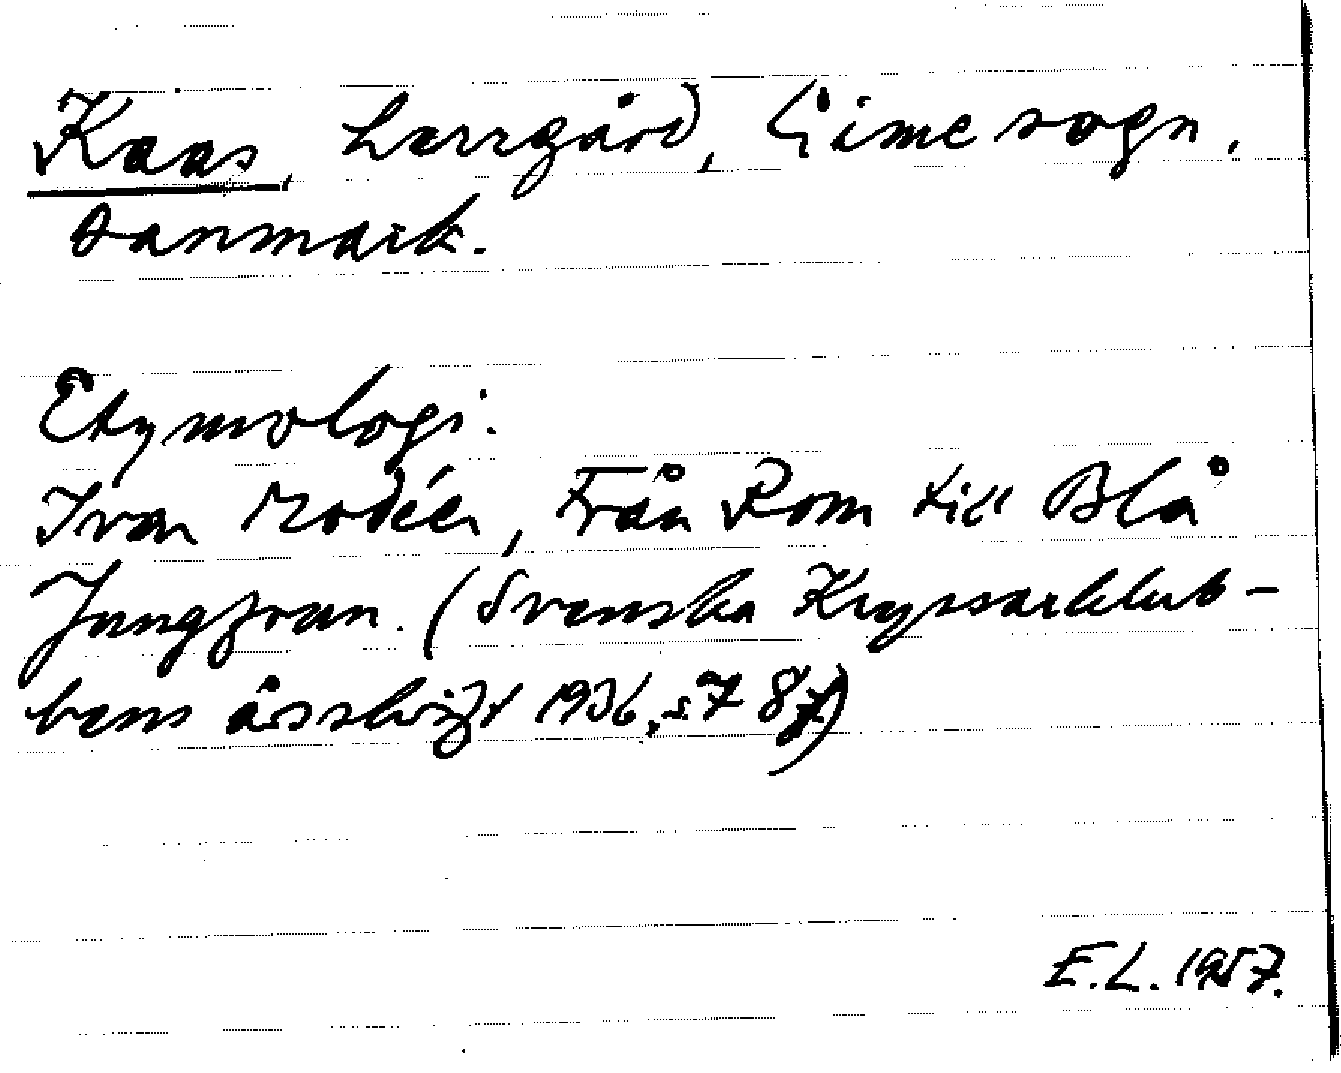 Kaas, herrgård, Lime sogn,
Danmark.
Etymologi.
Ivar Modéer, Från Rom till Blå
Jungfrun. (Svenska Kryssarklub-
bens årsskrift 1936, s. 87)
E.L. 1957.